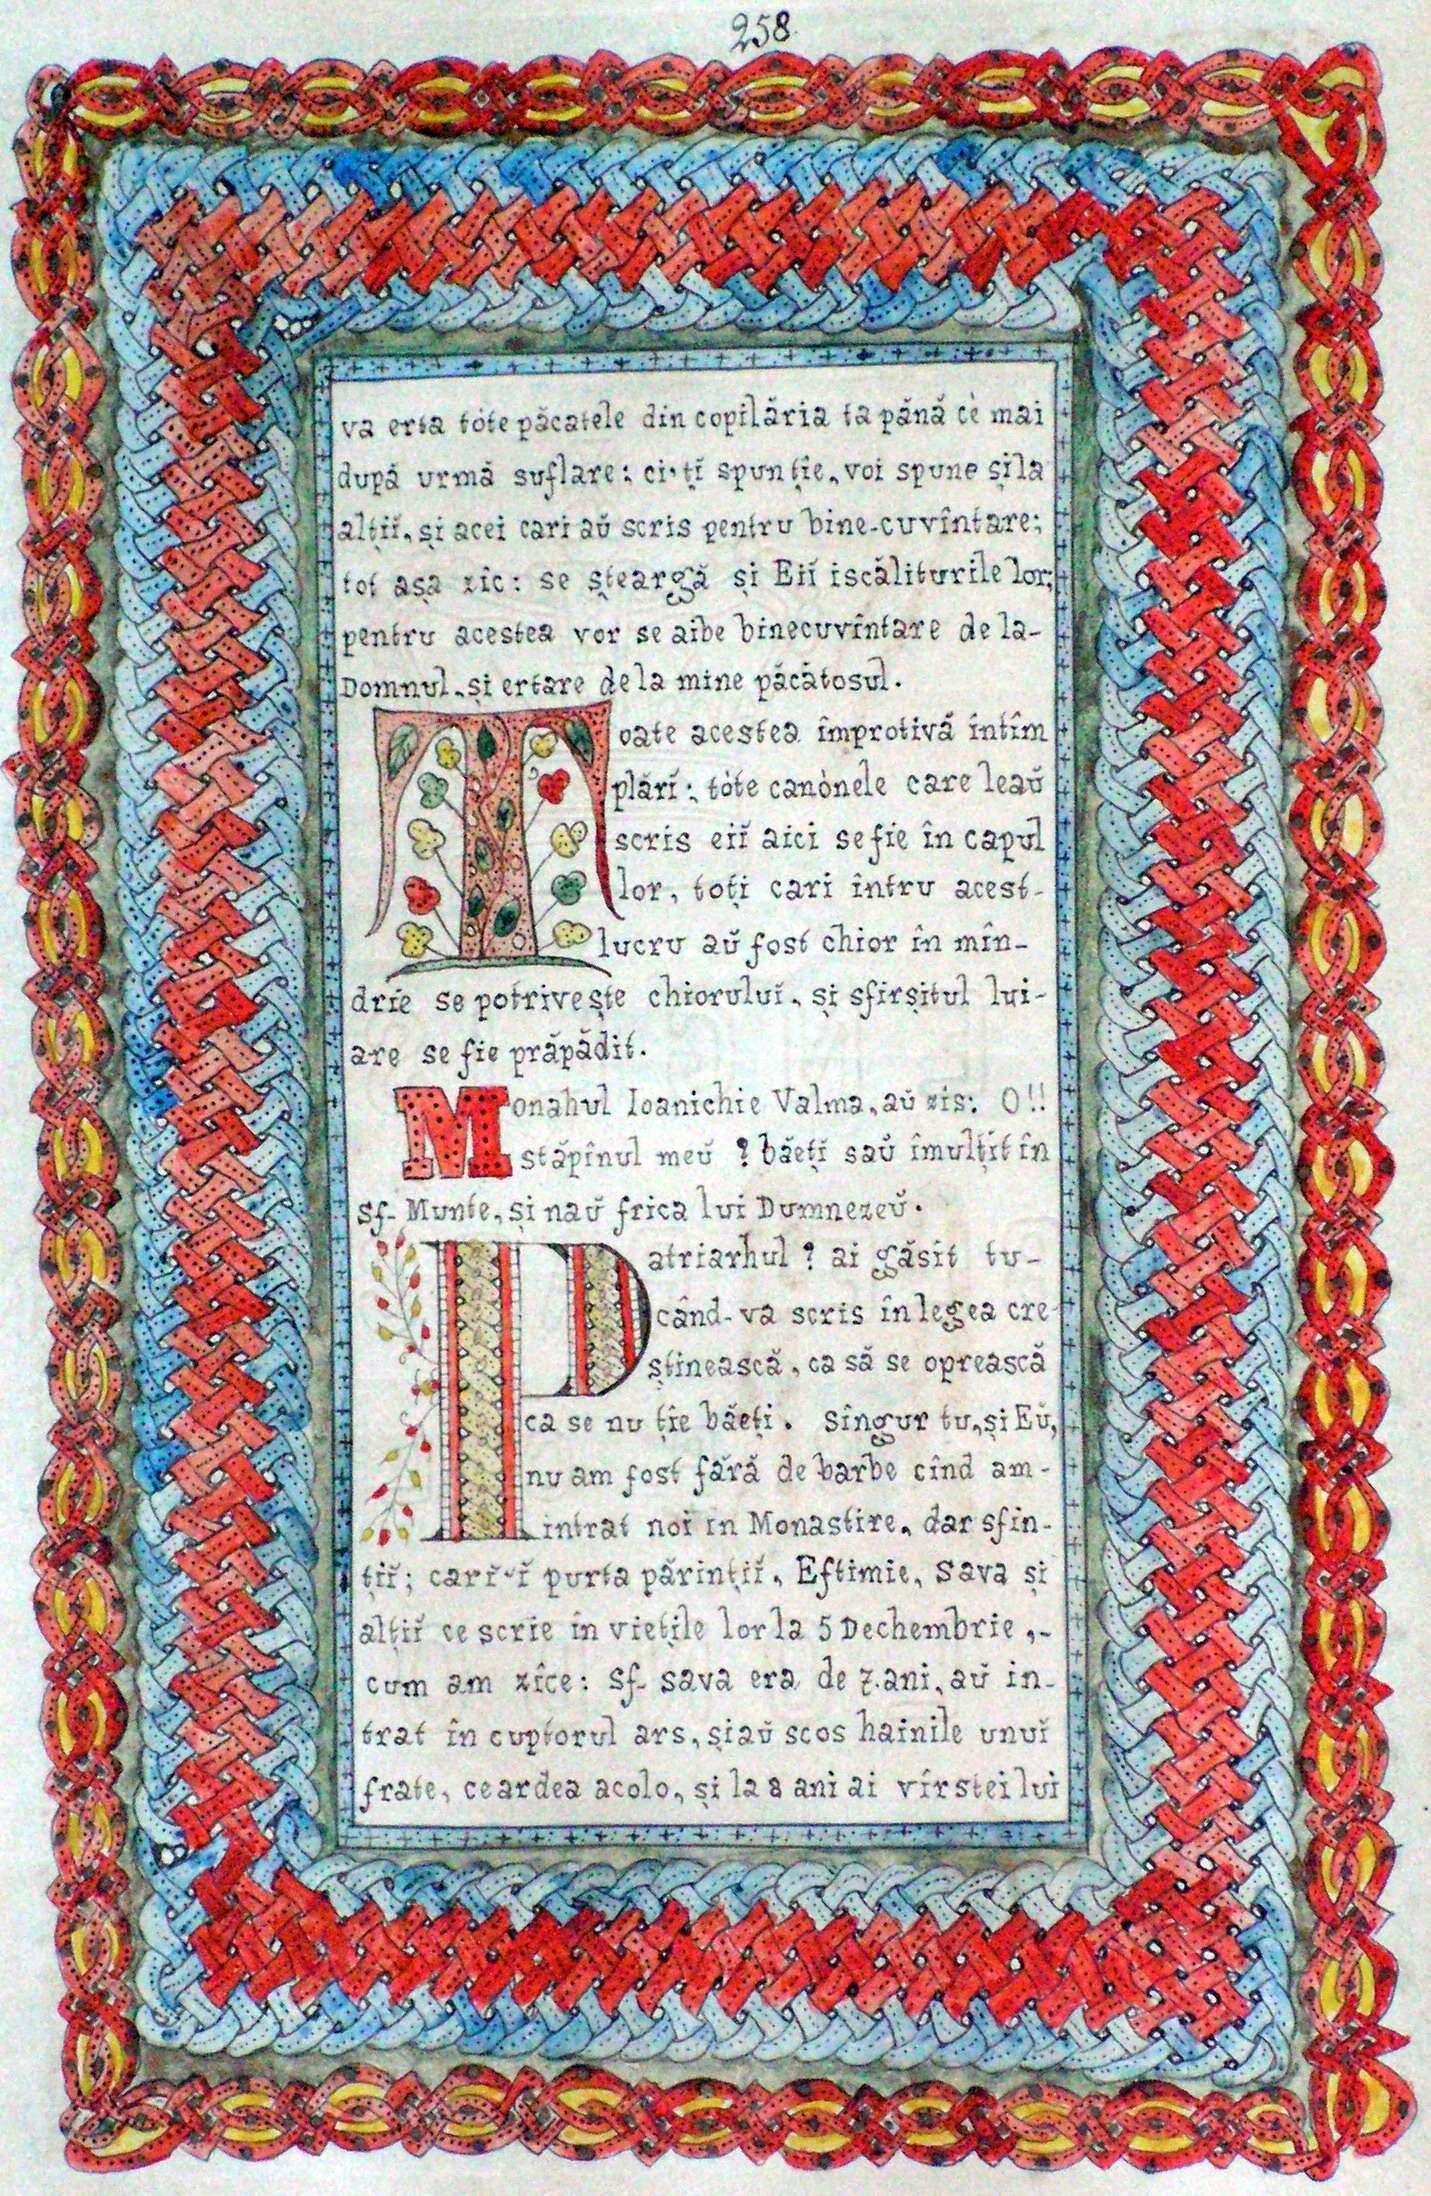 258.
va erta tóte păcatele din copilăria ta pănă cè mai
după urmă suflare: ci-țĭ spun țîe, voi spune și la
alțiĭ, și acei cari aŭ scris pentru bine-cuvîntare;
tot așa zîc: se șteargă și Eiĭ iscăliturile lor;
pentru acestea vor se aibe binecuvîntare de la-
Domnul, și ertare de la mine păcătosul.
Toate acestea împrotivă întîm
plărĭ: tóte canònele care leaŭ
scris eiĭ aici se fie în capul
lor, toți cari întru acest-
lucru aŭ fost chior în mîn-
drie se potrivește chioruluĭ, și sfirșitul lui-
are se fie prăpădit.
Monahul Ioanichie Valma, aŭ zis: O!!
stăpînul meŭ ? băețĭ saŭ îmulțit în
Sf- Munte, și naŭ frica lui Dumnezeŭ.
Patriarhul ? ai găsit tu-
când-va scris în legea cre-
știnească, ca să se oprească
ca se nu țîe băețĭ. Singur tu, și Eŭ,
nu am fost fără de barbe cînd am-
intrat noi in Monastire, dar sfin-
țiĭ; cariĭ-ĭ purta părințiĭ, Eftimie, Sava și
alțiĭ ce scrie în viețile lor la 5 Dechembrie,-
cum am zîce: Sf- Sava era de 7. ani, aŭ in-
trat în cuptorul ars, și aŭ scos hainile unuĭ
frate, ce ardea acolo, și la 8 ani ai vîrstei lui